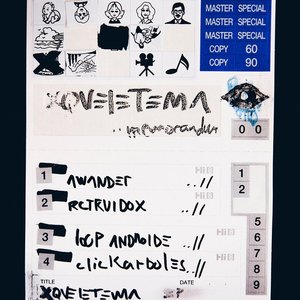 MASTER SPECIAL
MASTER SPECIAL
MASTER SPECIAL
COPY 60
COPY 90
XQVEIETEMA
..memorandum
0 0
1 AWANDET ..//
2 RETRUIDOX ..//
3 LOOP ANDROIDE ..//
4 clickarboles..//
1
2
5
6
7
8
9
TITLE
DATE
XQVEIETEMA EP